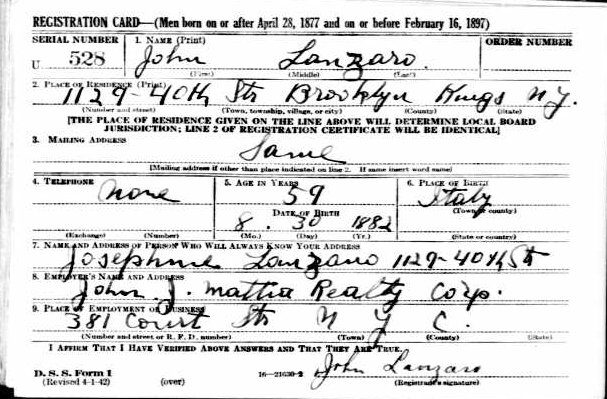 REGISTRATION CARD—(Men born on or after April 28, 1877 and on or before February 16, 1897)
SERIAL NUMBER 1. NAME (Print) ORDER NUMBER
U 528 John Lanzaro.
(First) (Middle) (Last)
2. PLACE OF RESIDENCE (Print)
1129-40th St Brooklyn Kings N.Y.
(Number and street) (Town, township, village, or city) (County) (State)
[THE PLACE OF RESIDENCE GIVEN ON THE LINE ABOVE WILL DETERMINE LOCAL BOARD
JURISDICTION; LINE 2 OF REGISTRATION CERTIFICATE WILL BE IDENTICAL]
3. MAILING ADDRESS
Same
[Mailing address if other than place indicated on line 2. If same insert word same]
4. TELEPHONE 5. AGE IN YEARS 6. PLACE OF BIRTH
None 59 Italy
DATE OF BIRTH (Town or county)
8. 30 1882
(Exchange) (Number) (Mo.) (Day) (Yr.) (State or country)
7. NAME AND ADDRESS OF PERSON WHO WILL ALWAYS KNOW YOUR ADDRESS
Josephine Lanzano 1129-40th St
8. EMPLOYER'S NAME AND ADDRESS
John J. Mattia Realty Corp.
9. PLACE OF EMPLOYMENT OR BUSINESS
381 Court St N Y C.
(Number and street or R. F. D. number) (Town) (County) (State)
I AFFIRM THAT I HAVE VERIFIED ABOVE ANSWERS AND THAT THEY ARE TRUE.
John Lanzaro
D. S. S. Form 1 16—21630-2 (Registrant's signature)
(Revised 4-1-42) (over)